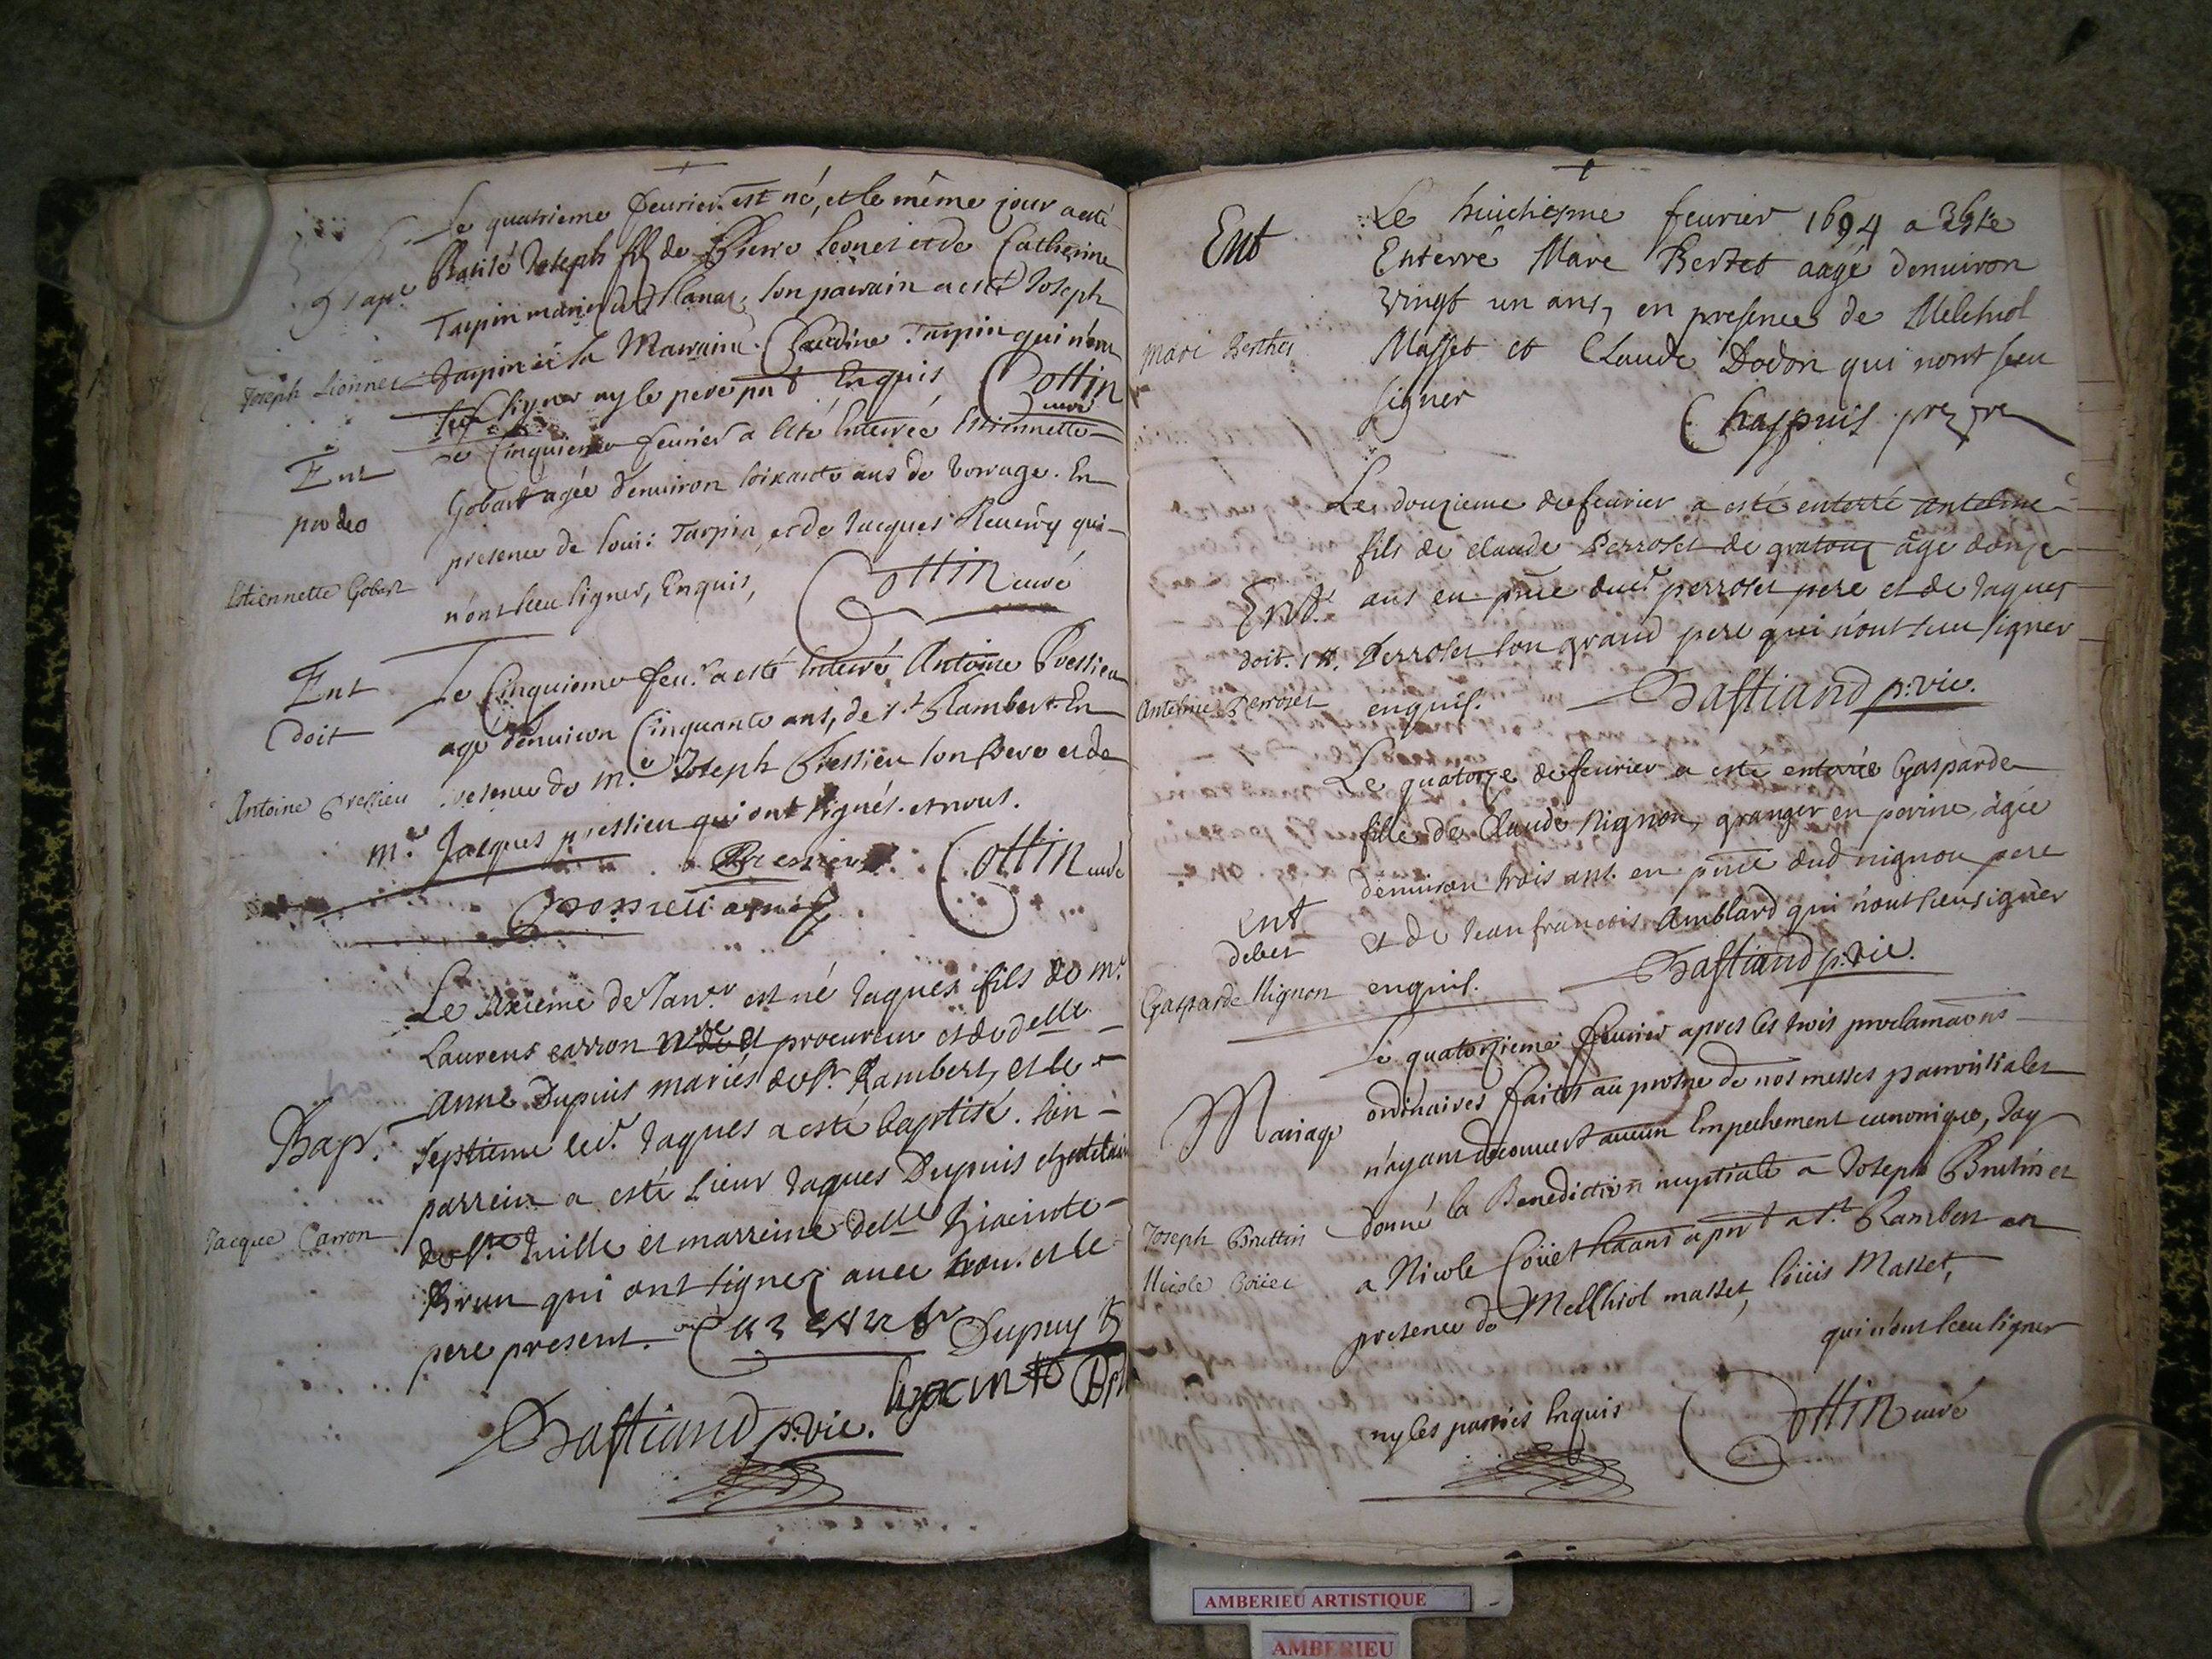 Le quatrieme feurier est né, et le même jour a esté
Batisé Joseph fils de Pierre Leonet et de Catherine
Tarpin mariés son parrain a esté Joseph
Tarpin et sa Marraine Claudine Tarpin qui n'ont
Joseph Lionnet
sceu signer ny le pere pnt Enquis Cottin
curé
Ent
pro deo
Estiennette Gobert
Le Cinquieme feurier a esté Enterrée Estiennette
Gobert agée d'enuiron soixante ans de En
presence de Louis Tarpin et de Jacques qui
n'ont sceu signer, Enquis, Cottin curé
Ent
doit
Antoine Pressieu
Le Cinquieme feur. a esté Enterré Antoine Pressieu
agé d'enuiron Cinquante ans, de st Rambert En
presence de Mre Joseph Pressieu son Pere et de
mre Jacques pressieu qui ont signés et nous.
Pressieu Cottin curé
Bapt.
Jacque Carron
Le sixieme de Janer est né Jaques fils de mr
Laurens carron procureur et de delle
Anne Dupuis mariés de st Rambert, et le
septieme led. Jaques a esté baptisé. son
parrein a esté sieur Jaques Dupuis chatelain
de st et marreine delle Hiacinte
Brun qui ont signez auec nous et le
pere present. Dupuy
hyacinte
Bastiand p. vic.
Ent
Marc Berthet
Le huictiesme feurier 1694 a Esté
Enterré Marc Bertet aagé denuiron
vingt un ans, en presence de Melchiol
Masset et Claude Dodon qui nont sceu
signer
Chappuis prestre
Ent.
doit. 1 ff.
Antelme Perroset
Le douzieme de feurier a esté enterré antelme
fils de claude Perroset de gratoux âgé d'onze
ans en pnce dud. perroset pere et de Jaques
Perroset son grand pere qui n'ont sceu signer
enquis. Bastiand p. vic.
Ent
debet
Gasparde Nignon
Le quatorze de feurier a este enterrée Gasparde
fille de Claude Nignon, granger en porine, âgée
denuiron trois ans en pnce dud nignon pere
et de Jean francois Amblard qui n'ont sceu signer
enquis. Bastiand p. vic.
Mariage
Joseph Bruttin
Nicole Coüet
Le quatorzieme feurier apres les trois proclamaons
ordinaires faites au prosne de nos messes parroissiales
n'ayant decouuert aucun Empechement canonique, Jay
donné la Benediction nuptiale a Joseph Brutin et
a Nicole Coüet a pnt a st Rambert en
presence de Melchiol masset, Loüis Masset,
qui n'ont sceu signer
ny les parties Enquis Cottin curé
AMBERIEU ARTISTIQUE
AMBERIEU